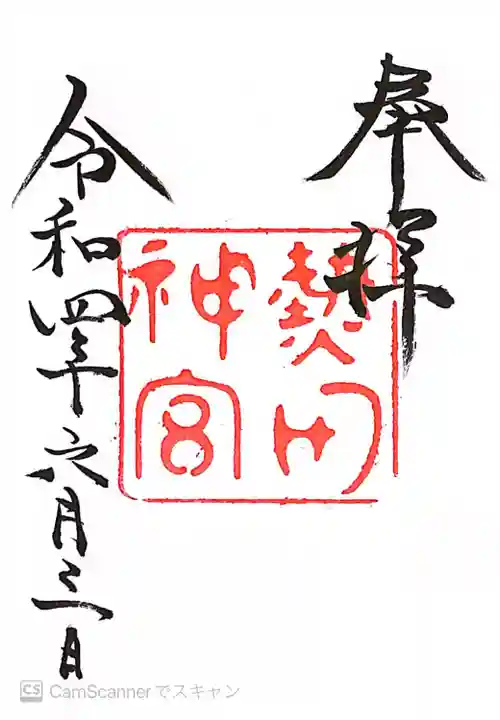 奉拝
熱田
神宮
令和四年六月三日
CS CamScannerでスキャン